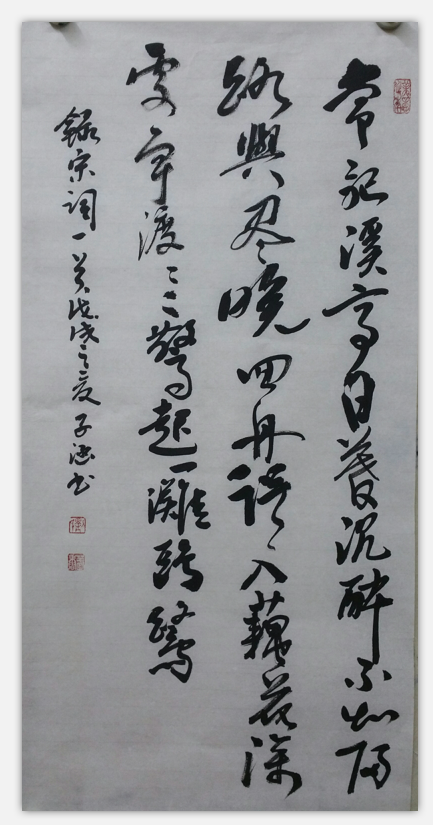 常記溪亭日暮沉醉不知歸
路興尽晚回舟誤入藕花深
處爭渡〻〻驚起一灘鷗鷺
錄宋詞一首戊戌之夏子书